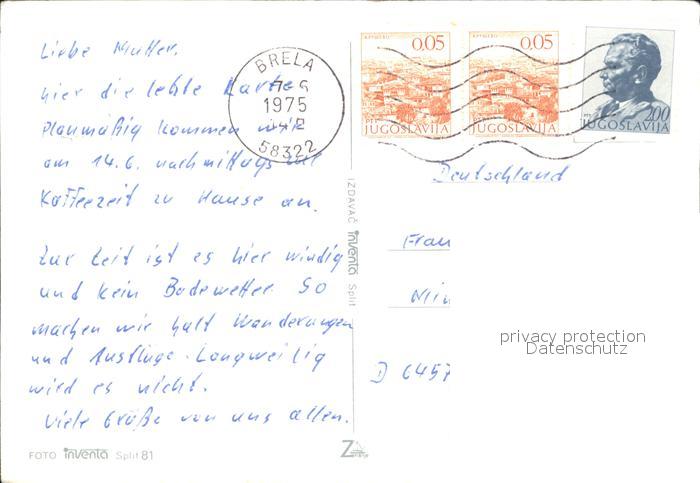 Liebe Mutter.
hier die letzte Karte.
Planmäßig kommen wir
am 14.6. nachmittags
Kaffeezeit zu Hause an.
Zur Zeit ist es hier windig
und kein Badewetter. So
machen wir halt Wanderungen
und Ausflüge. Langweilig
wird es nicht.
Viele Grüße von uns allen.
BRELA
1975
58322
КРУШЕВО 0,05
PTT JUGOSLAVIJA
КРУШЕВО 0,05
PTT JUGOSLAVIJA
2,00
PTT JUGOSLAVIJA
IZDAVAČ inventa Split
Deutschland
Frau
D 6457
privacy protection
Datenschutz
FOTO inventa Split 81